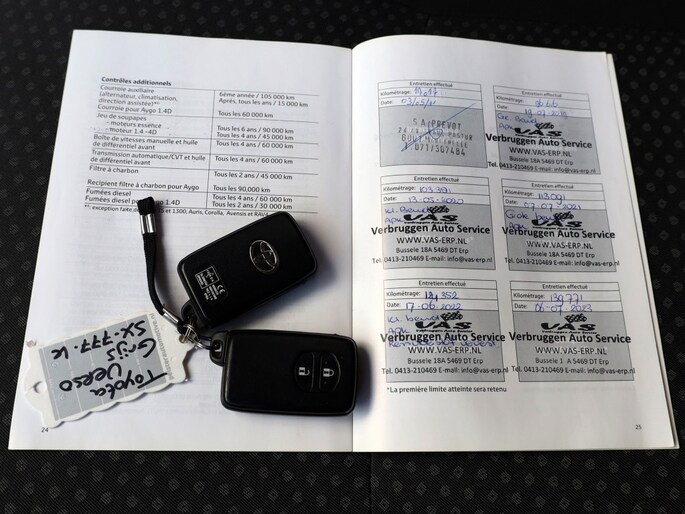 Contrôles additionnels
Courroie auxiliaire
(alternateur, climatisation,
direction assistée)*¹
6ème année / 105 000 km
Après, tous les ans / 15 000 km
Courroie pour Aygo 1.4D
Tous les 60 000 km
Jeu de soupapes
- moteurs essence
Tous les 6 ans / 90 000 km
- moteur 1.4 -4D
Tous les 4 ans / 45 000 km
Boîte de vitesses manuelle et huile
de différentiel avant
Tous les 4 ans / 60 000 km
Transmission automatique/CVT et huile
de différentiel avant
Tous les 4 ans / 60 000 km
Filtre à charbon
Tous les 2 ans / 45 000 km
Recipient filtre à charbon pour Aygo
Tous les 90,000 km
Fumées diesel
Tous les 4 ans / 60 000 km
Fumées diesel 1.4D
Tous les 2 ans / 30 000 km
Toyota
Verso
Grijs
SX-777-k
24
Entretien effectué
Kilométrage:
Date: 03/05/
S.A. PREVOT
071/307484
Entretien effectué
Kilométrage:
Date:
VAS
Verbruggen Auto Service
WWW.VAS-ERP.NL
Bussele 18A 5469 DT Erp
Tel. 0413-210469 E-mail: info@vas-erp.nl
Entretien effectué
Kilométrage: 103 391
Date: 13-05-2020
kl. beurt
VAS
Verbruggen Auto Service
WWW.VAS-ERP.NL
Bussele 18A 5469 DT Erp
Tel. 0413-210469 E-mail: info@vas-erp.nl
Entretien effectué
Kilométrage: 113091
Date: 07-07-2021
Grote beurt
Verbruggen Auto Service
WWW.VAS-ERP.NL
Bussele 18A 5469 DT Erp
Tel. 0413-210469 E-mail: info@vas-erp.nl
Entretien effectué
Kilométrage:
Date: 17-06-2022
kl beurt
VAS
Verbruggen Auto Service
WWW.VAS-ERP.NL
Bussele 18A 5469 DT Erp
Tel. 0413-210469 E-mail: info@vas-erp.nl
Entretien effectué
Kilométrage: 130771
Date: 06-07-2023
VAS
Verbruggen Auto Service
WWW.VAS-ERP.NL
Bussele 1 A 5469 DT Erp
Tel. 0413-210469 E-mail: info@vas-erp.nl
*La première limite atteinte sera retenu
25